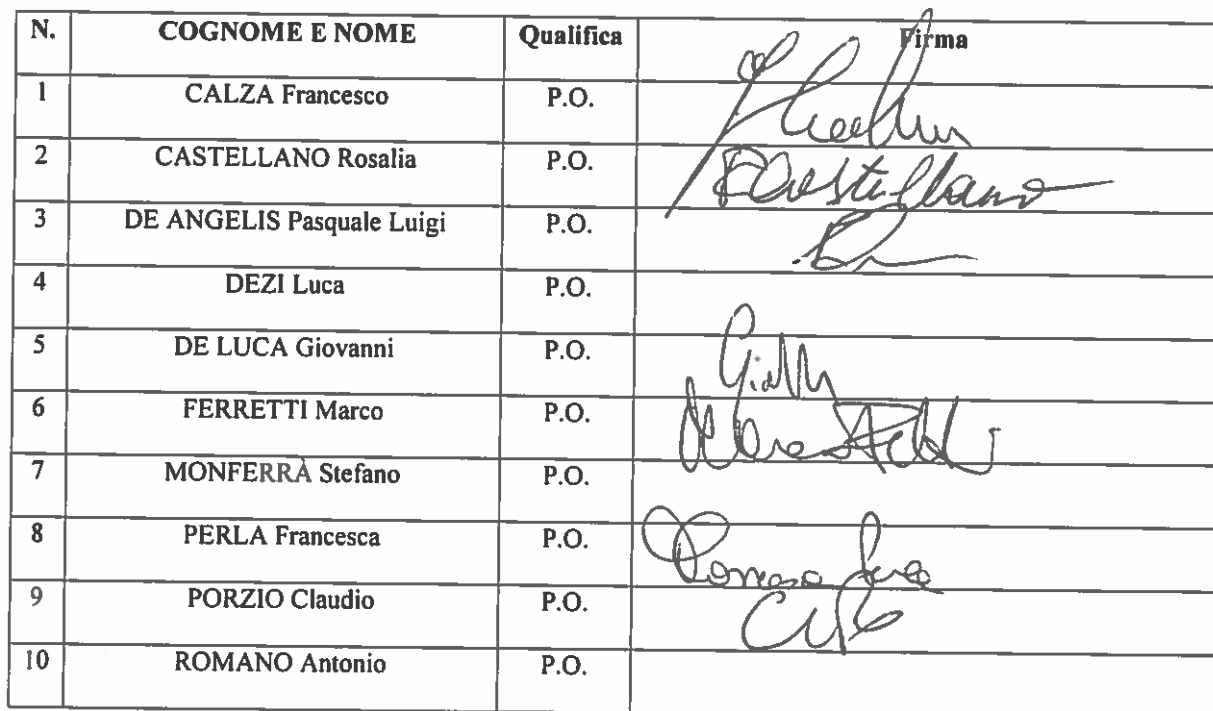 N. COGNOME E NOME Qualifica Firma
1 CALZA Francesco P.O.
2 CASTELLANO Rosalia P.O. RCastellano
3 DE ANGELIS Pasquale Luigi P.O.
4 DEZI Luca P.O.
5 DE LUCA Giovanni P.O.
6 FERRETTI Marco P.O.
7 MONFERRÀ Stefano P.O.
8 PERLA Francesca P.O.
9 PORZIO Claudio P.O.
10 ROMANO Antonio P.O.